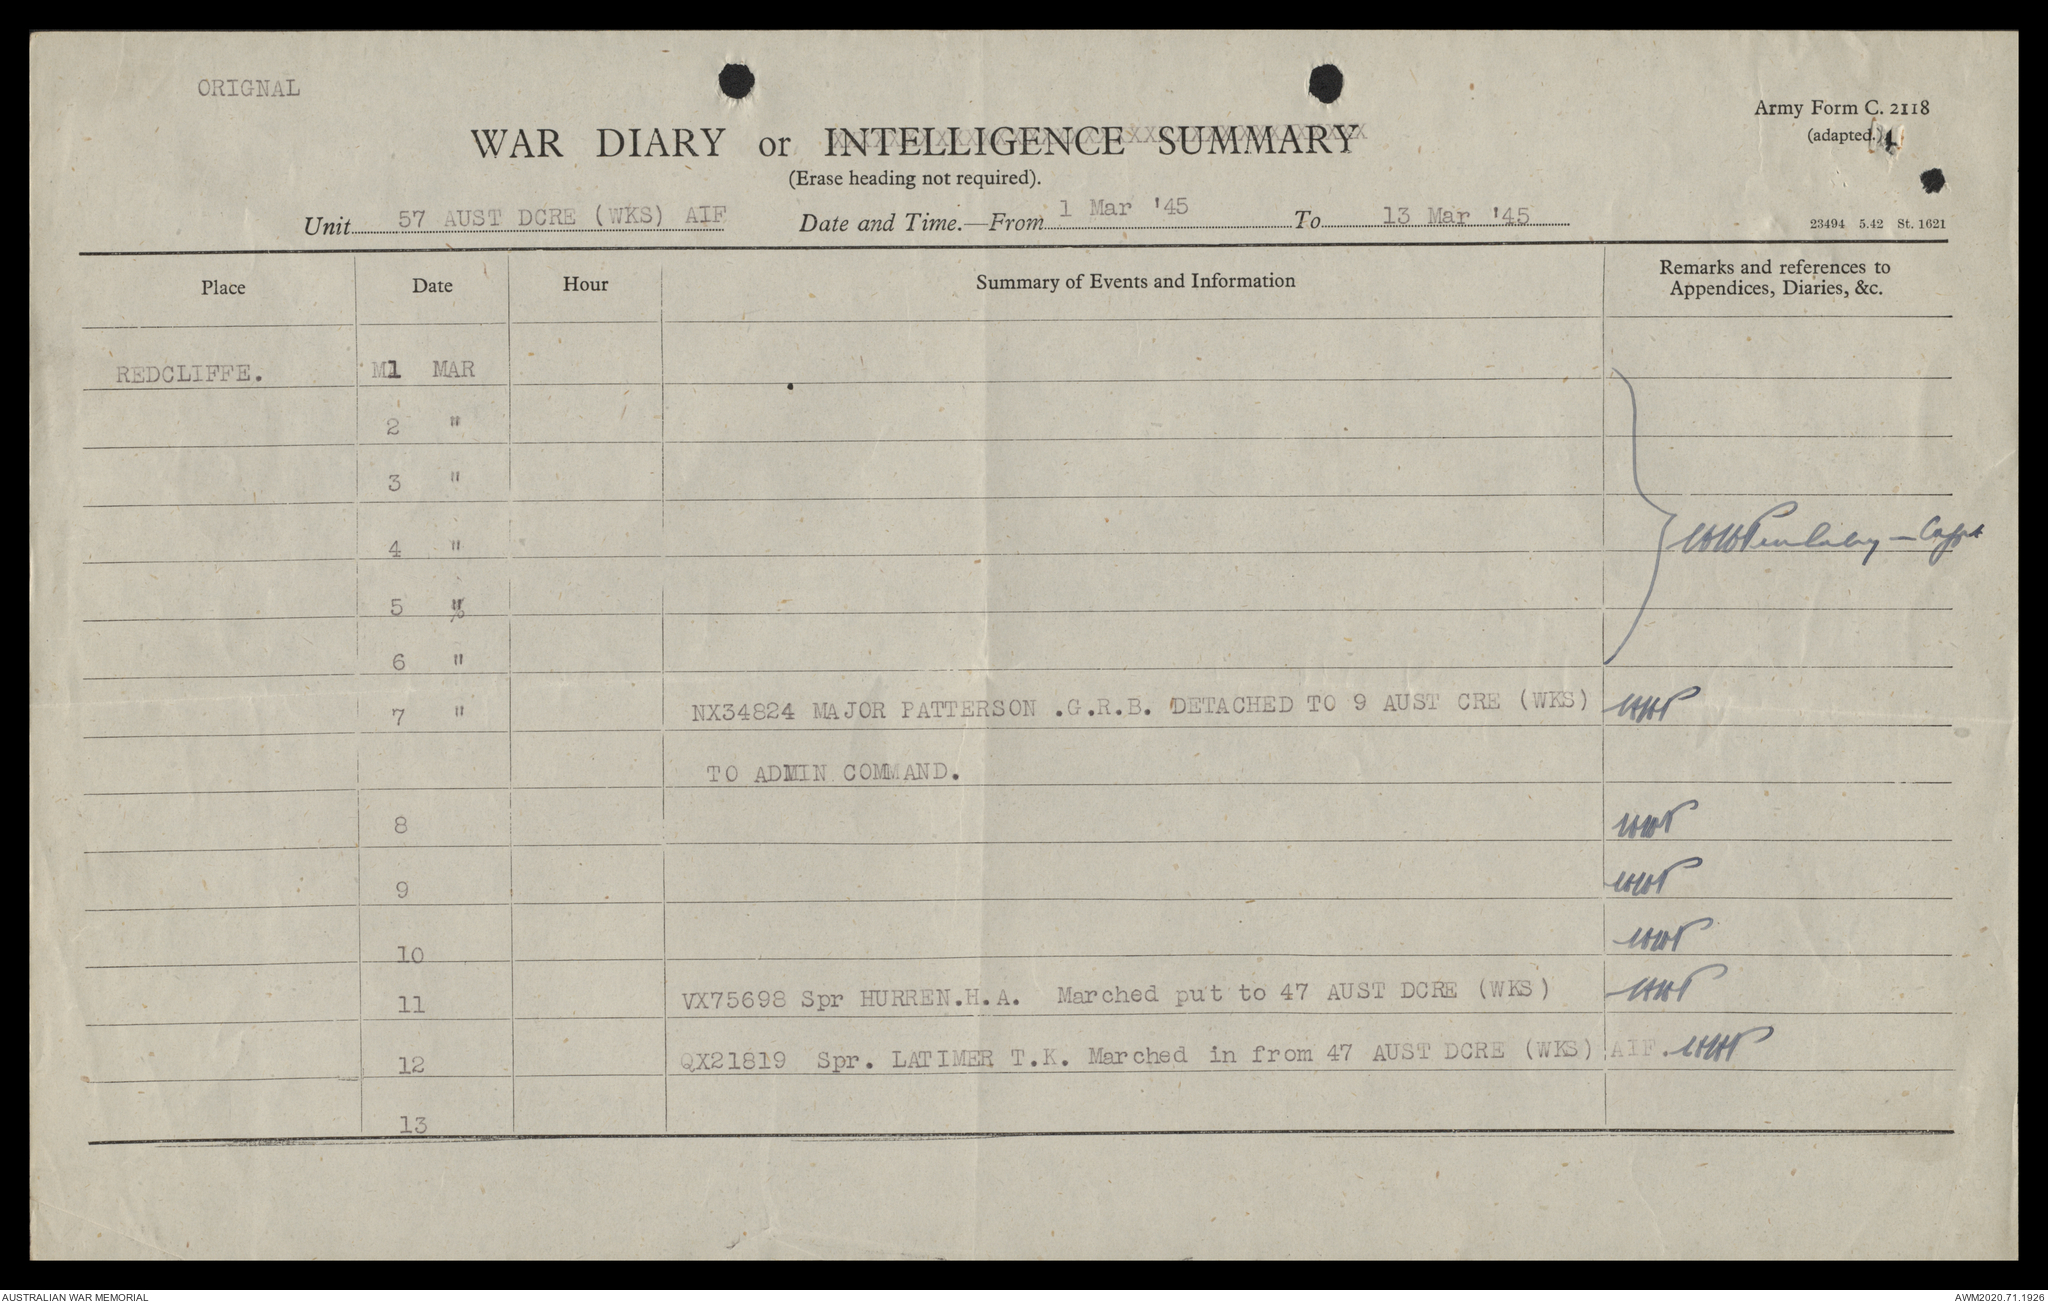 ORIGNAL
Army Form C. 2118
(adapted.)
WAR DIARY or INTELLIGENCE SUMMARY
(Erase heading not required).
Unit 57 AUST DCRE (WKS) AIF Date and Time.—From 1 Mar '45 To 13 Mar '45
23494 5.42 St. 1621
Place Date Hour Summary of Events and Information Remarks and references to
Appendices, Diaries, &c.
REDCLIFFE. M1 MAR
2 "
3 "
4 " Capt
5 "
6 "
7 " NX34824 MAJOR PATTERSON .G.R.B. DETACHED TO 9 AUST CRE (WKS) WWP
TO ADMIN COMMAND.
8 WWP
9 WWP
10 WWP
11 VX75698 Spr HURREN.H.A. Marched put to 47 AUST DCRE (WKS) WWP
12 QX21819 Spr. LATIMER T.K. Marched in from 47 AUST DCRE (WKS) AIF. WWP
13
AUSTRALIAN WAR MEMORIAL AWM2020.71.1926